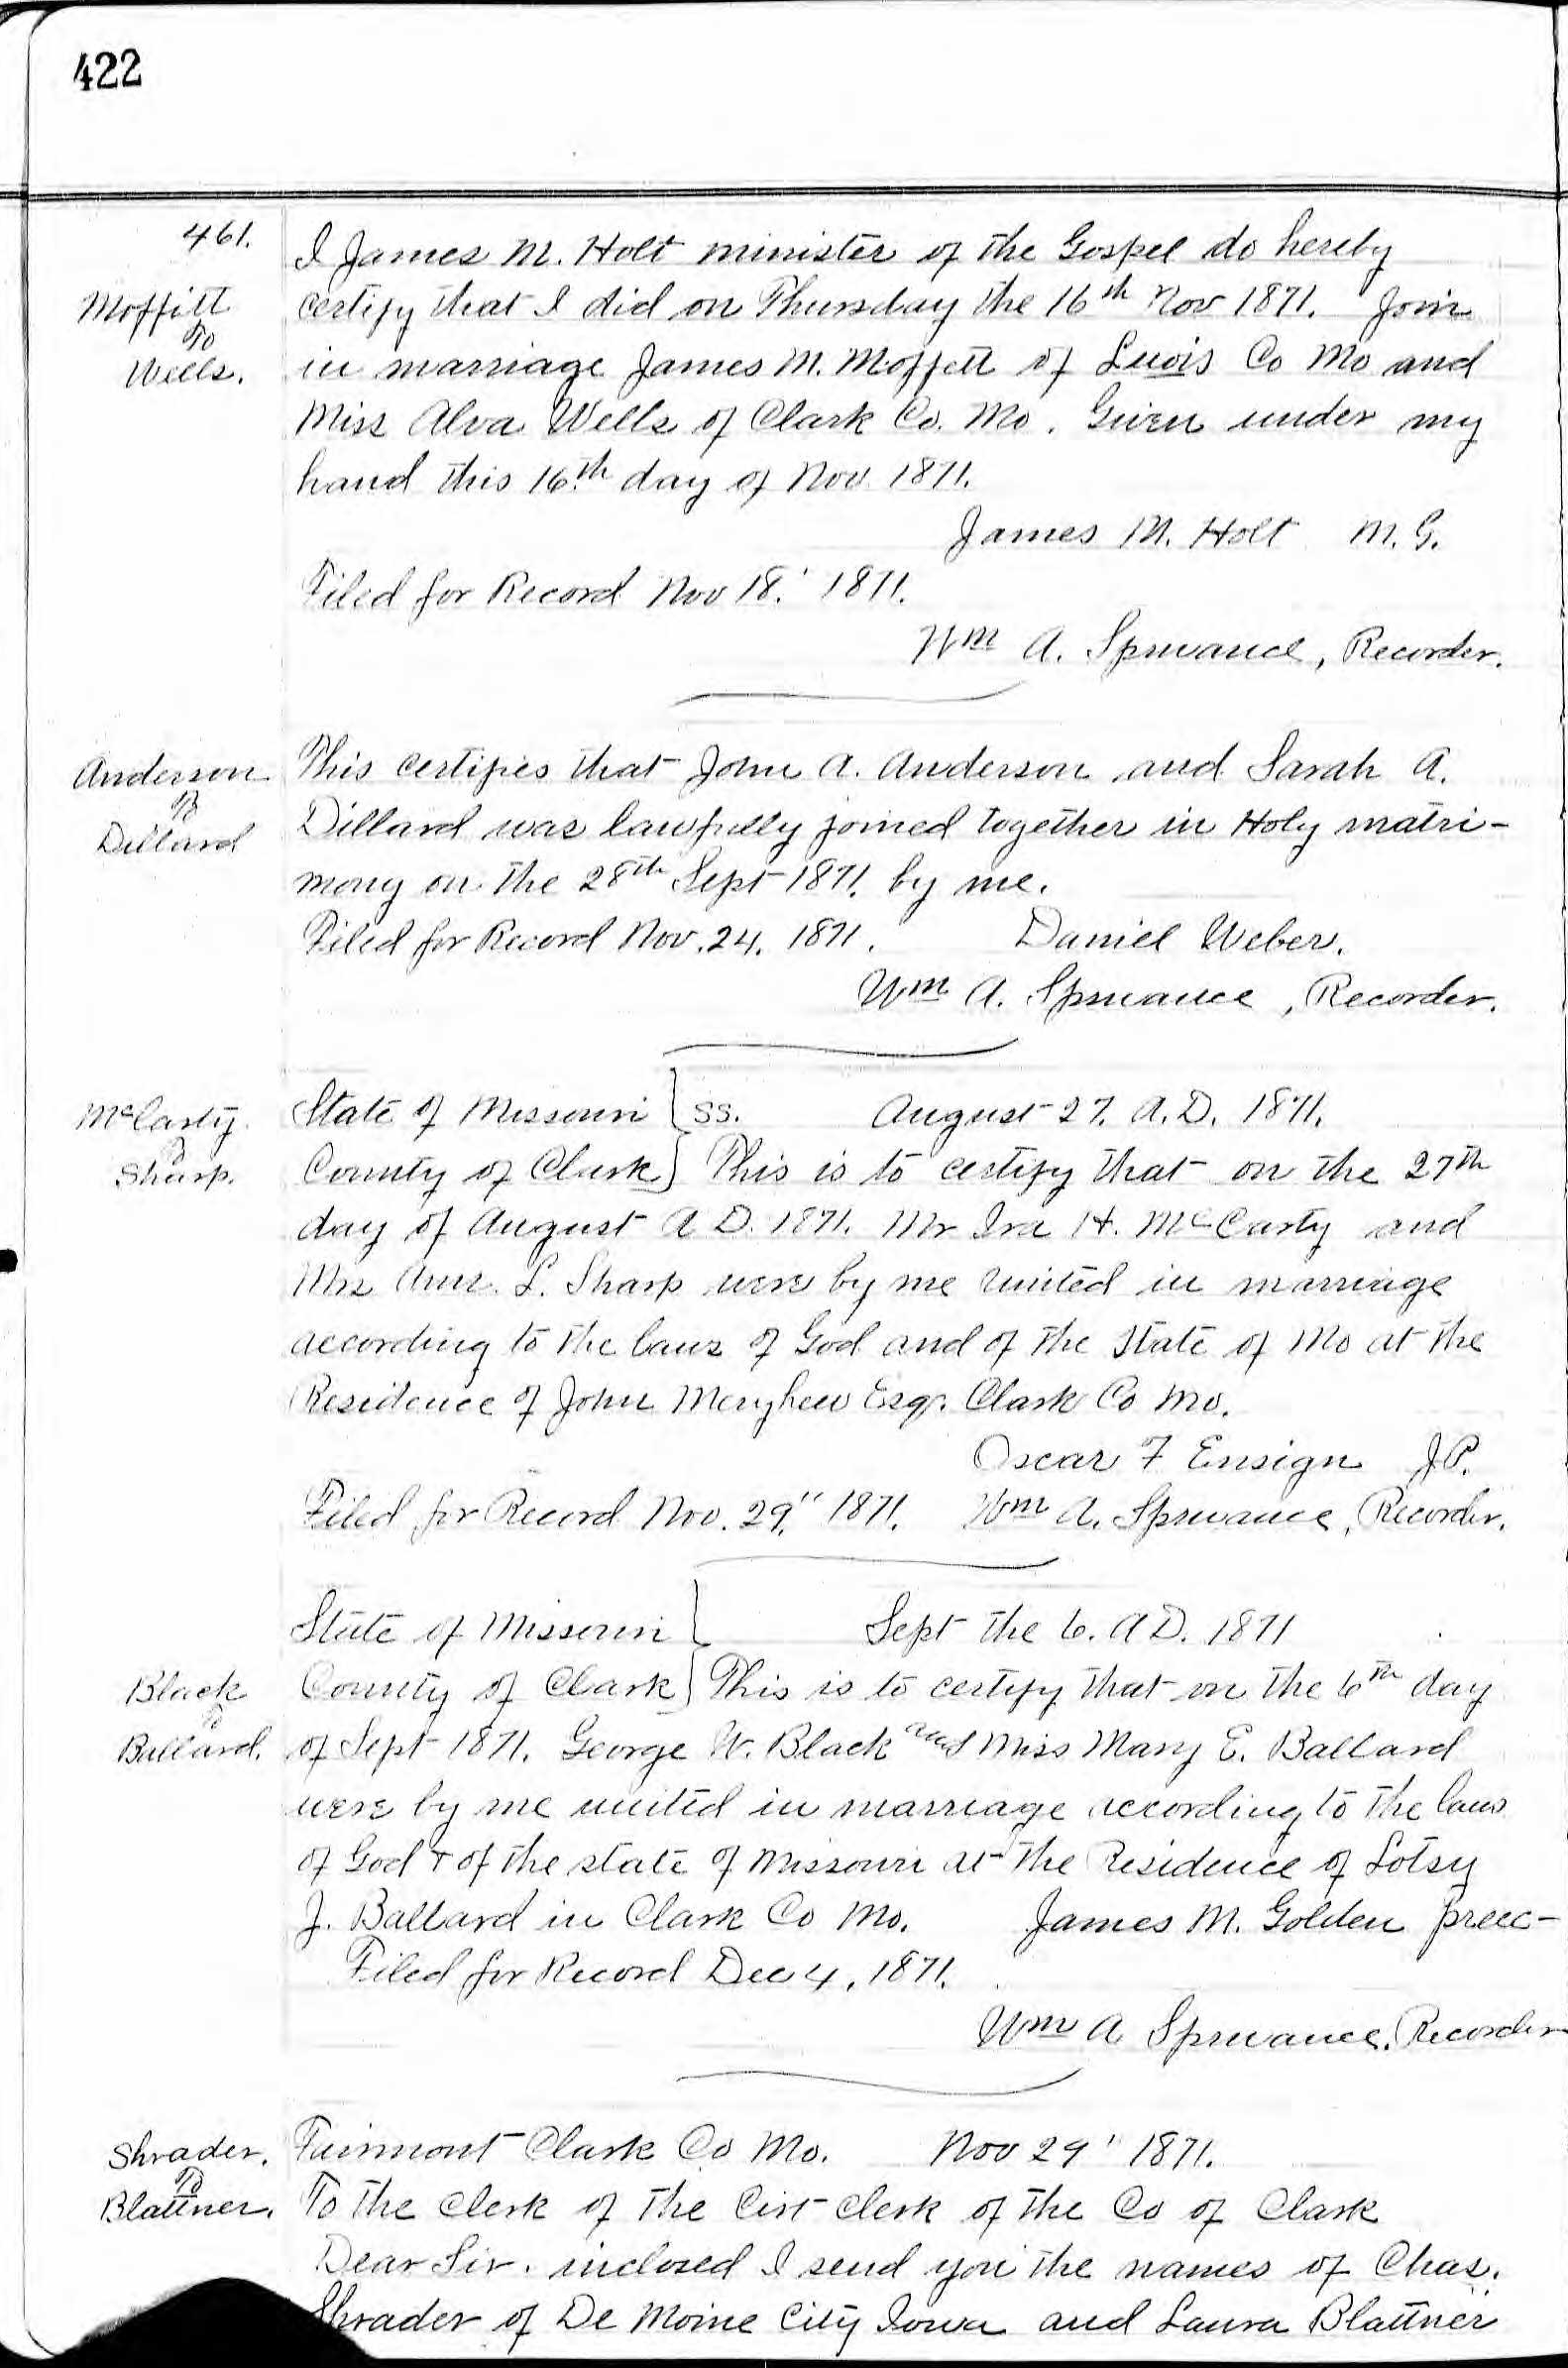 422
461.
I James M. Holt minister of the Gospel do hereby
Moffitt
To
Wells.
certify that I did on Thursday the 16th Nov 1871. Join
in marriage James M. Moffett of Lewis Co Mo and
Miss Alva Wells of Clark Co. Mo. Given under my
hand this 16th day of Nov 1871.
James M. Holt M. G.
Filed for Record Nov 18.' 1871.
Wm A. Spruance, Recorder.
Anderson
To
Dillard
This certifies that John A. Anderson and Sarah A.
Dillard was lawfully joined together in Holy matri-
mony on the 28th Sept 1871. by me.
Filed for Record Nov. 24. 1871. Daniel Weber.
Wm A. Spruance, Recorder.
McCarty
To
Sharp.
State of Missouri } ss. August 27. A.D. 1871.
County of Clark } This is to certify that on the 27th
day of August A D. 1871. Mr Ira H. McCarty and
Mrs L. Sharp were by me united in marriage
according to the laws of God and of the State of Mo at the
Residence of John Meryhew Esqr. Clark Co Mo.
Oscar F Ensign J.P.
Filed for Record Nov. 29." 1871. Wm A. Spruance, Recorder.
State of Missouri } Sept the 6. A D. 1871
Black
To
Ballard.
County of Clark } This is to certify that on the 6th day
of Sept 1871. George W. Black and Miss Mary E. Ballard
were by me united in marriage according to the laws
of God & of the state of Missouri at the Residence of Lotsy
J. Ballard in Clark Co Mo. James M. Golden preec-
Filed for Record Dec 4, 1871.
Wm A Spruance, Recorder
Shrader.
To
Blattner.
Fairmont Clark Co Mo. Nov 29' 1871.
To the Clerk of the Circt Clerk of the Co of Clark
Dear Sir. inclosed I send you the names of Chas.
Shrader of De Moine City Iowa and Laura Blattner